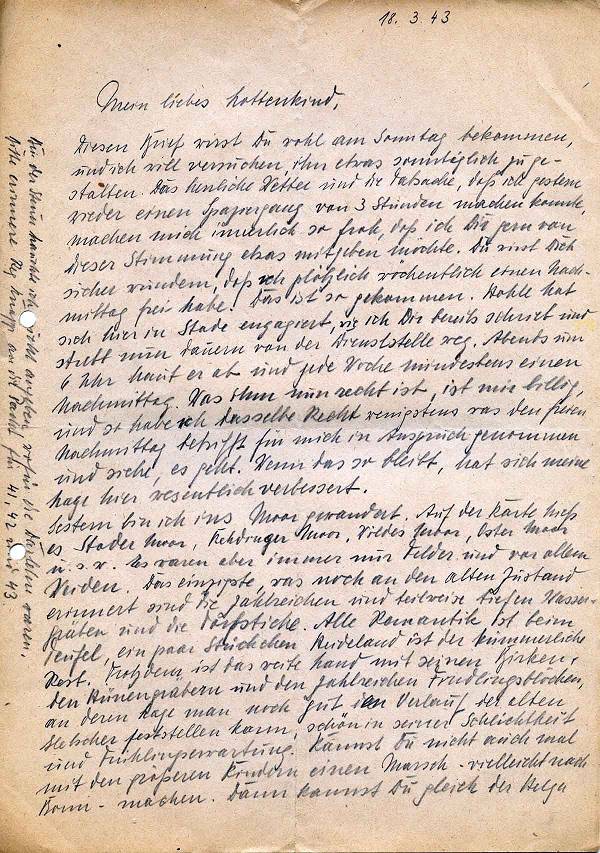 18. 3. 43
Mein liebes Lottenkind,
Diesen Brief wirst Du wohl am Sonntag bekommen,
und ich will versuchen, ihn etwas sonntäglich zu ge-
stalten. Das herrliche Wetter und die Tatsache, daß ich gestern
wieder einen Spaziergang von 3 Stunden machen konnte,
machen mich innerlich so froh, daß ich Dir gern von
dieser Stimmung etwas mitgeben möchte. Du wirst Dich
sicher wundern, daß ich plötzlich wöchentlich einen Nach-
mittag frei habe. Das ist so gekommen. hat
sich hier in Stade engagiert, wie ich Dir bereits schrieb und
strebt nun dauern von der Dienststelle weg. Abends um
6 Uhr haut er ab und jede Woche mindestens einen
Nachmittag. Was ihm nun recht ist, ist mir billig,
und so habe ich dasselbe Recht wenigstens was den freien
Nachmittag betrifft für mich in Anspruch genommen
und siehe, es geht. Wenn das so bleibt, hat sich meine
Lage hier wesentlich verbessert.
Gestern bin ich ins Moor gewandert. Auf der Karte hieß
es Stader Moor, Moor, Wildes Moor, Oster Moor
u.s.w. Es waren aber immer nur Felder und vor allem
Weiden. Das einzigste, was noch an den alten Zustand
erinnert sind die zahlreichen und teilweise tiefen Wasser-
gräben und die Torfstiche. Alle Romantik ist beim
Teufel, ein paar Streifchen Heideland ist der kümmerliche
Rest. Trotzdem ist das weite Land mit seinen Birken,
den Hünengräbern und den zahlreichen Findlingsblöcken,
an deren Lage man noch gut den Verlauf der alten
Gletscher feststellen kann, schön in seiner Schlichtheit
und Frühlingserwartung. Kannst Du nicht auch mal
mit den größeren Kindern einen Marsch - vielleicht nach
Bonn - machen. Dann kannst Du gleich der Helga
An der Steuer brauchte ich nicht angeben, wofür die waren.
Bitte erinnere an die Pacht für 41, 42 und 43